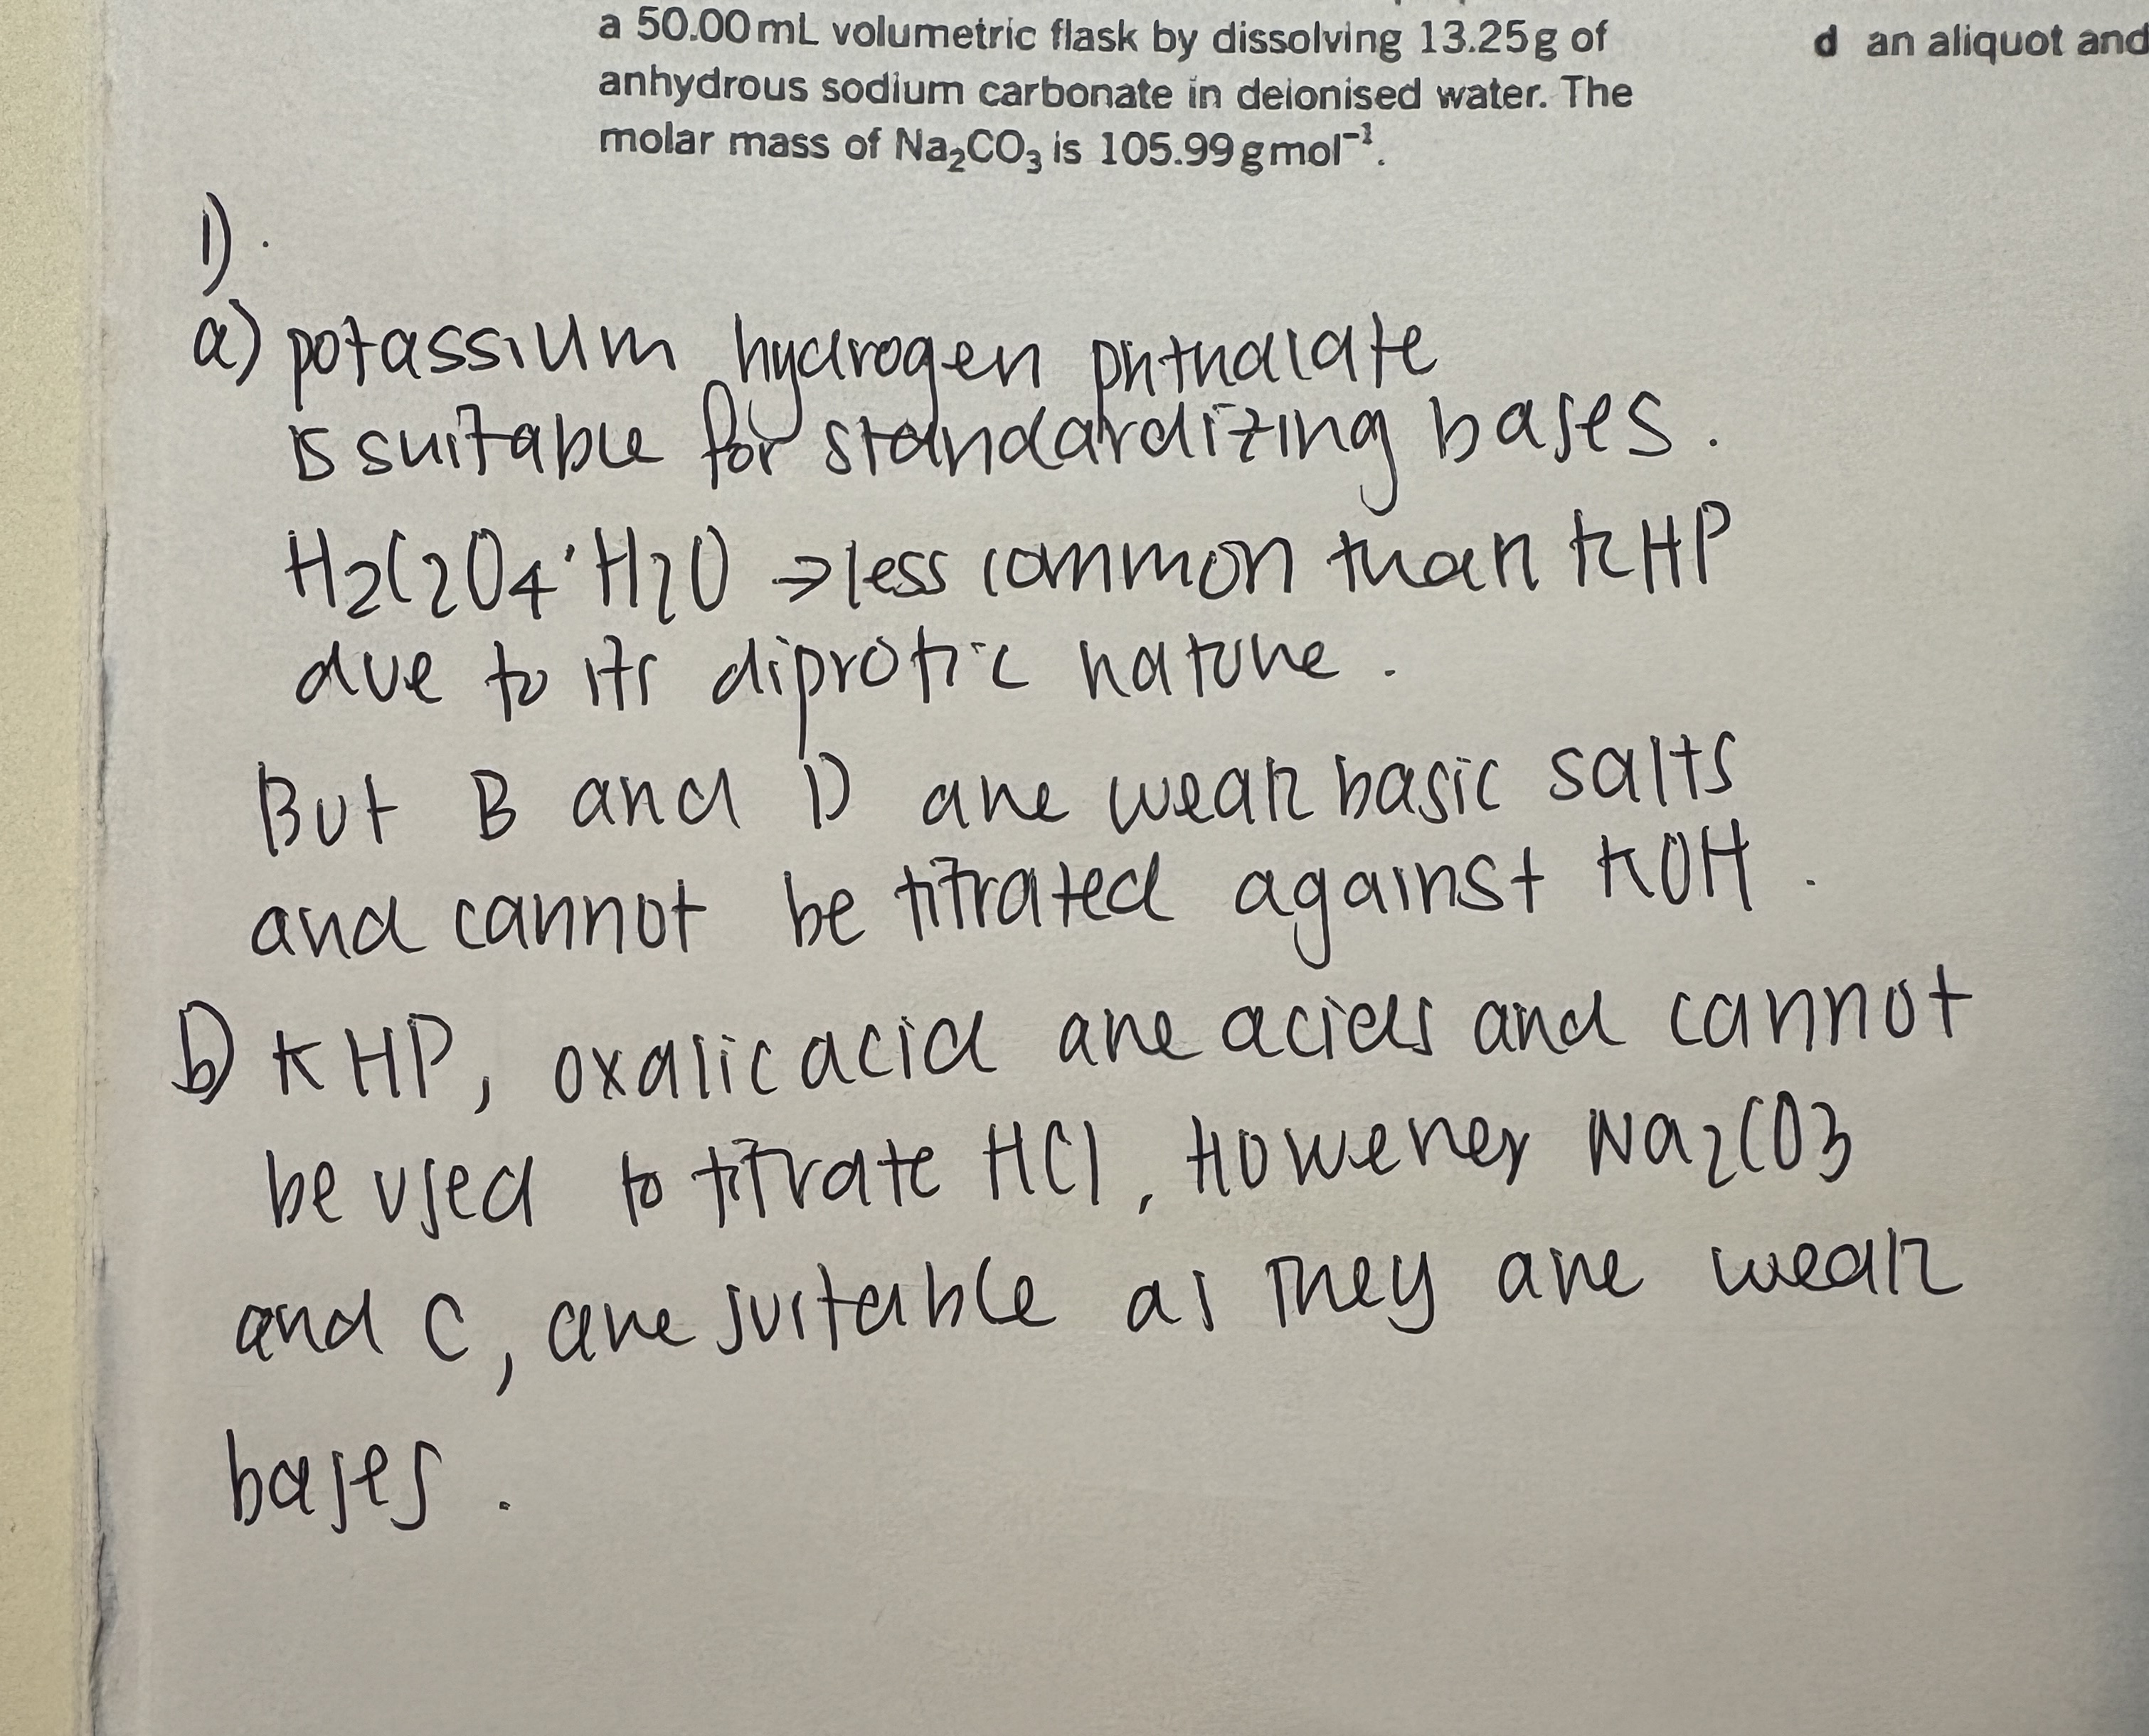 a 50.00 mL volumetric flask by dissolving 13.25 g of
anhydrous sodium carbonate in deionised water. The
molar mass of Na₂CO₃ is 105.99 g mol⁻¹.
d an aliquot and
1).
a) potassium hydrogen phthalate
is suitable for standardizing bases.
H2C2O4·H2O ⇒ less common than KHP
due to its diprotic nature.
But B and D are weak basic salts
and cannot be titrated against KOH.
b) KHP, oxalic acid are acids and cannot
be used to titrate HCl, However Na2CO3
and C, are suitable as they are weak
bases.